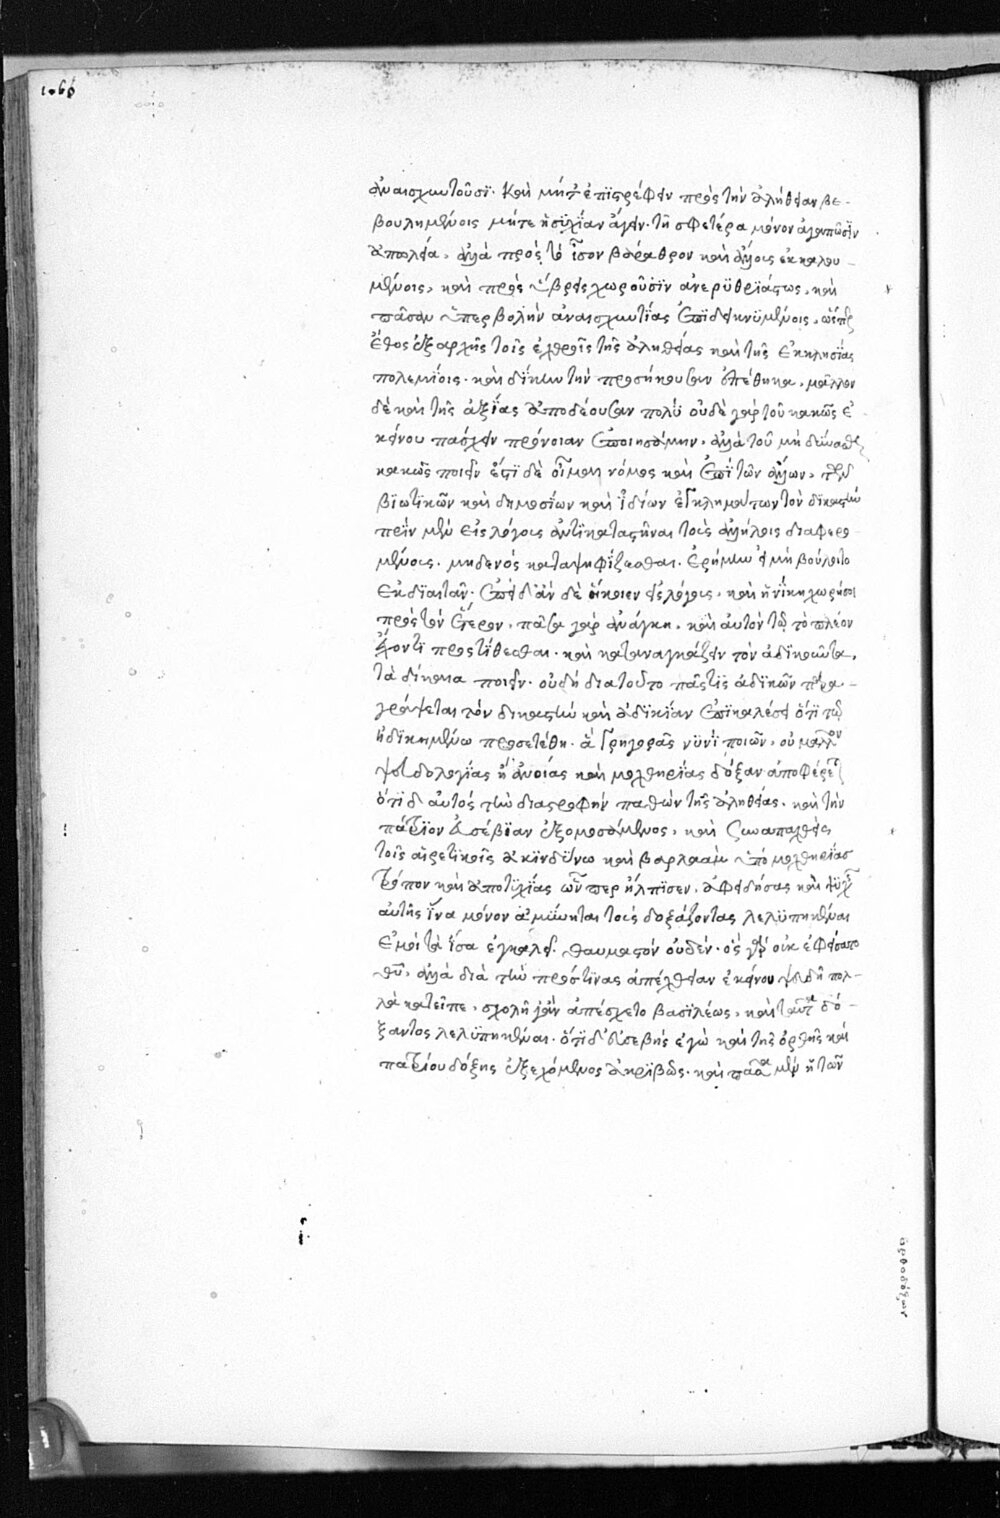 ἀναισχυντοῦσϊ. καὶ μήτ' ἐπϊστρέφειν πρὸς τὴν ἀλήθειαν βε-
βουλημένοις μήτε ἡσϋχίαν ἄγειν. τῇ σφετέρα μόνον ἀγαπῶσϊν
ἀπωλεία, ἀλλὰ πρὸς τὸ ἶσον βάραθρον καὶ ἄλλους ἐκκαλου-
μένοις, καὶ πρὸς ὕβρεις χωροῦσϊν ἀνερϋθριάστως, καὶ
πᾶσαν ὑπερβολὴν ἀναισχυντίας ἐπϊδεικνϋμένοις, ὥσπερ
ἔθος ἐξαρχῆς τοῖς ἐχθροῖς τῆς ἀληθείας καὶ τῆς ἐκκλησΐας
πολεμΐοις. καὶ δίκην τὴν προσήκουσαν ἐπέθηκα, μᾶλλον
δὲ καὶ τῆς ἀξΐας ἀποδέουσαν πολὺ οὐδὲ γὰρ τοῦ κακῶς ἐ-
κείνου πάσχειν πρόνοιαν ἐποιησάμην, ἀλλὰ τοῦ μὴ δύνασθαι
κακῶς ποιεῖν ἔστϊ δὲ οἶμαι νόμος καὶ ἐπὶ τῶν ἄλλων,
βϊωτϊκῶν καὶ δημοσΐων καὶ ἰδίων ἐγκλημάτων τὸν δϊκαστὴν
πρὶν μὲν εἰς λόγους ἀντϊκαταστῆναι τοὺς ἀλλήλοις διαφερο-
μένους. μηδενὸς καταψηφΐζεσθαι. ἐρήμην εἰ μὴ βούλοιτο
ἐκδϊαιτᾶν. ἐπειδὰν δὲ ἥκοιεν εἰς λόγους, καὶ ἡ νΐκη χωρήσοι
πρὸς τὸν ἕτερον, πᾶσα γὰρ ἀνάγκη, καὶ αὐτὸν τῷ τὸ πλέον
ἔχοντι προστίθεσθαι. καὶ καταναγκάζειν τὸν ἀδϊκοῦντα,
τὰ δίκαια ποιεῖν. οὐ δὴ διατοῦτο πᾶς τϊς ἀδϊκῶν παρα-
γράψεται τὸν δικαστὴν καὶ ἀδϊκίαν ἐπϊκαλέσει ὅτϊ τῷ
ἠδϊκημένω προσετέθη. ἃ Γρηγορᾶς νϋνὶ ποιῶν, οὐ μᾶλλον
ψευδολογίας ἢ ἀνοίας καὶ μοχθηρΐας δόξαν ἀποφέρεται
ὅτϊ δ' αὐτὸς τὴν διαστροφὴν παθὼν τῆς ἀληθείας. καὶ τὴν
πάτρϊον εὐσέβϊαν ἐξομοσάμενος, καὶ συναπαχθεὶς
τοῖς αἱρετϊκοῖς ἀκϊνδύνω καὶ βαρλαὰμ ὑπὸ μοχθηρΐας
τρόπων καὶ ἀποτϋχίας ὧνπερ ἤλπϊσεν, ἀφειδήσας καὶ ψυχῆς
αὐτῆς ἵνα μόνον ἀμύνηται τοὺς δοξάζοντας λελϋπηκέναι
ἐμοὶ τὰ ἴσα ἐγκαλεῖ. θαυμαστὸν οὐδέν. ὃς γὰρ οὐκ ἐφείσατο
θεοῦ, ἀλλὰ διὰ τὴν πρός τϊνας ἀπέχθειαν ἐκείνου ψευδῆ πολ-
λὰ κατεῖπε, σχολῇ γ' ἂν ἀπέσχετο βασϊλέως, καὶ ταῦτα δό-
ξαντος λελϋπηκέναι. ὅτϊ δ' εὐσεβὴς ἐγὼ καὶ τῆς ὀρθῆς καὶ
πατρίου δόξης ἐξεχόμενος ἀκρϊβῶς. καὶ πάλαι μὲν ἡ τῶν
ὀρθοδόξων